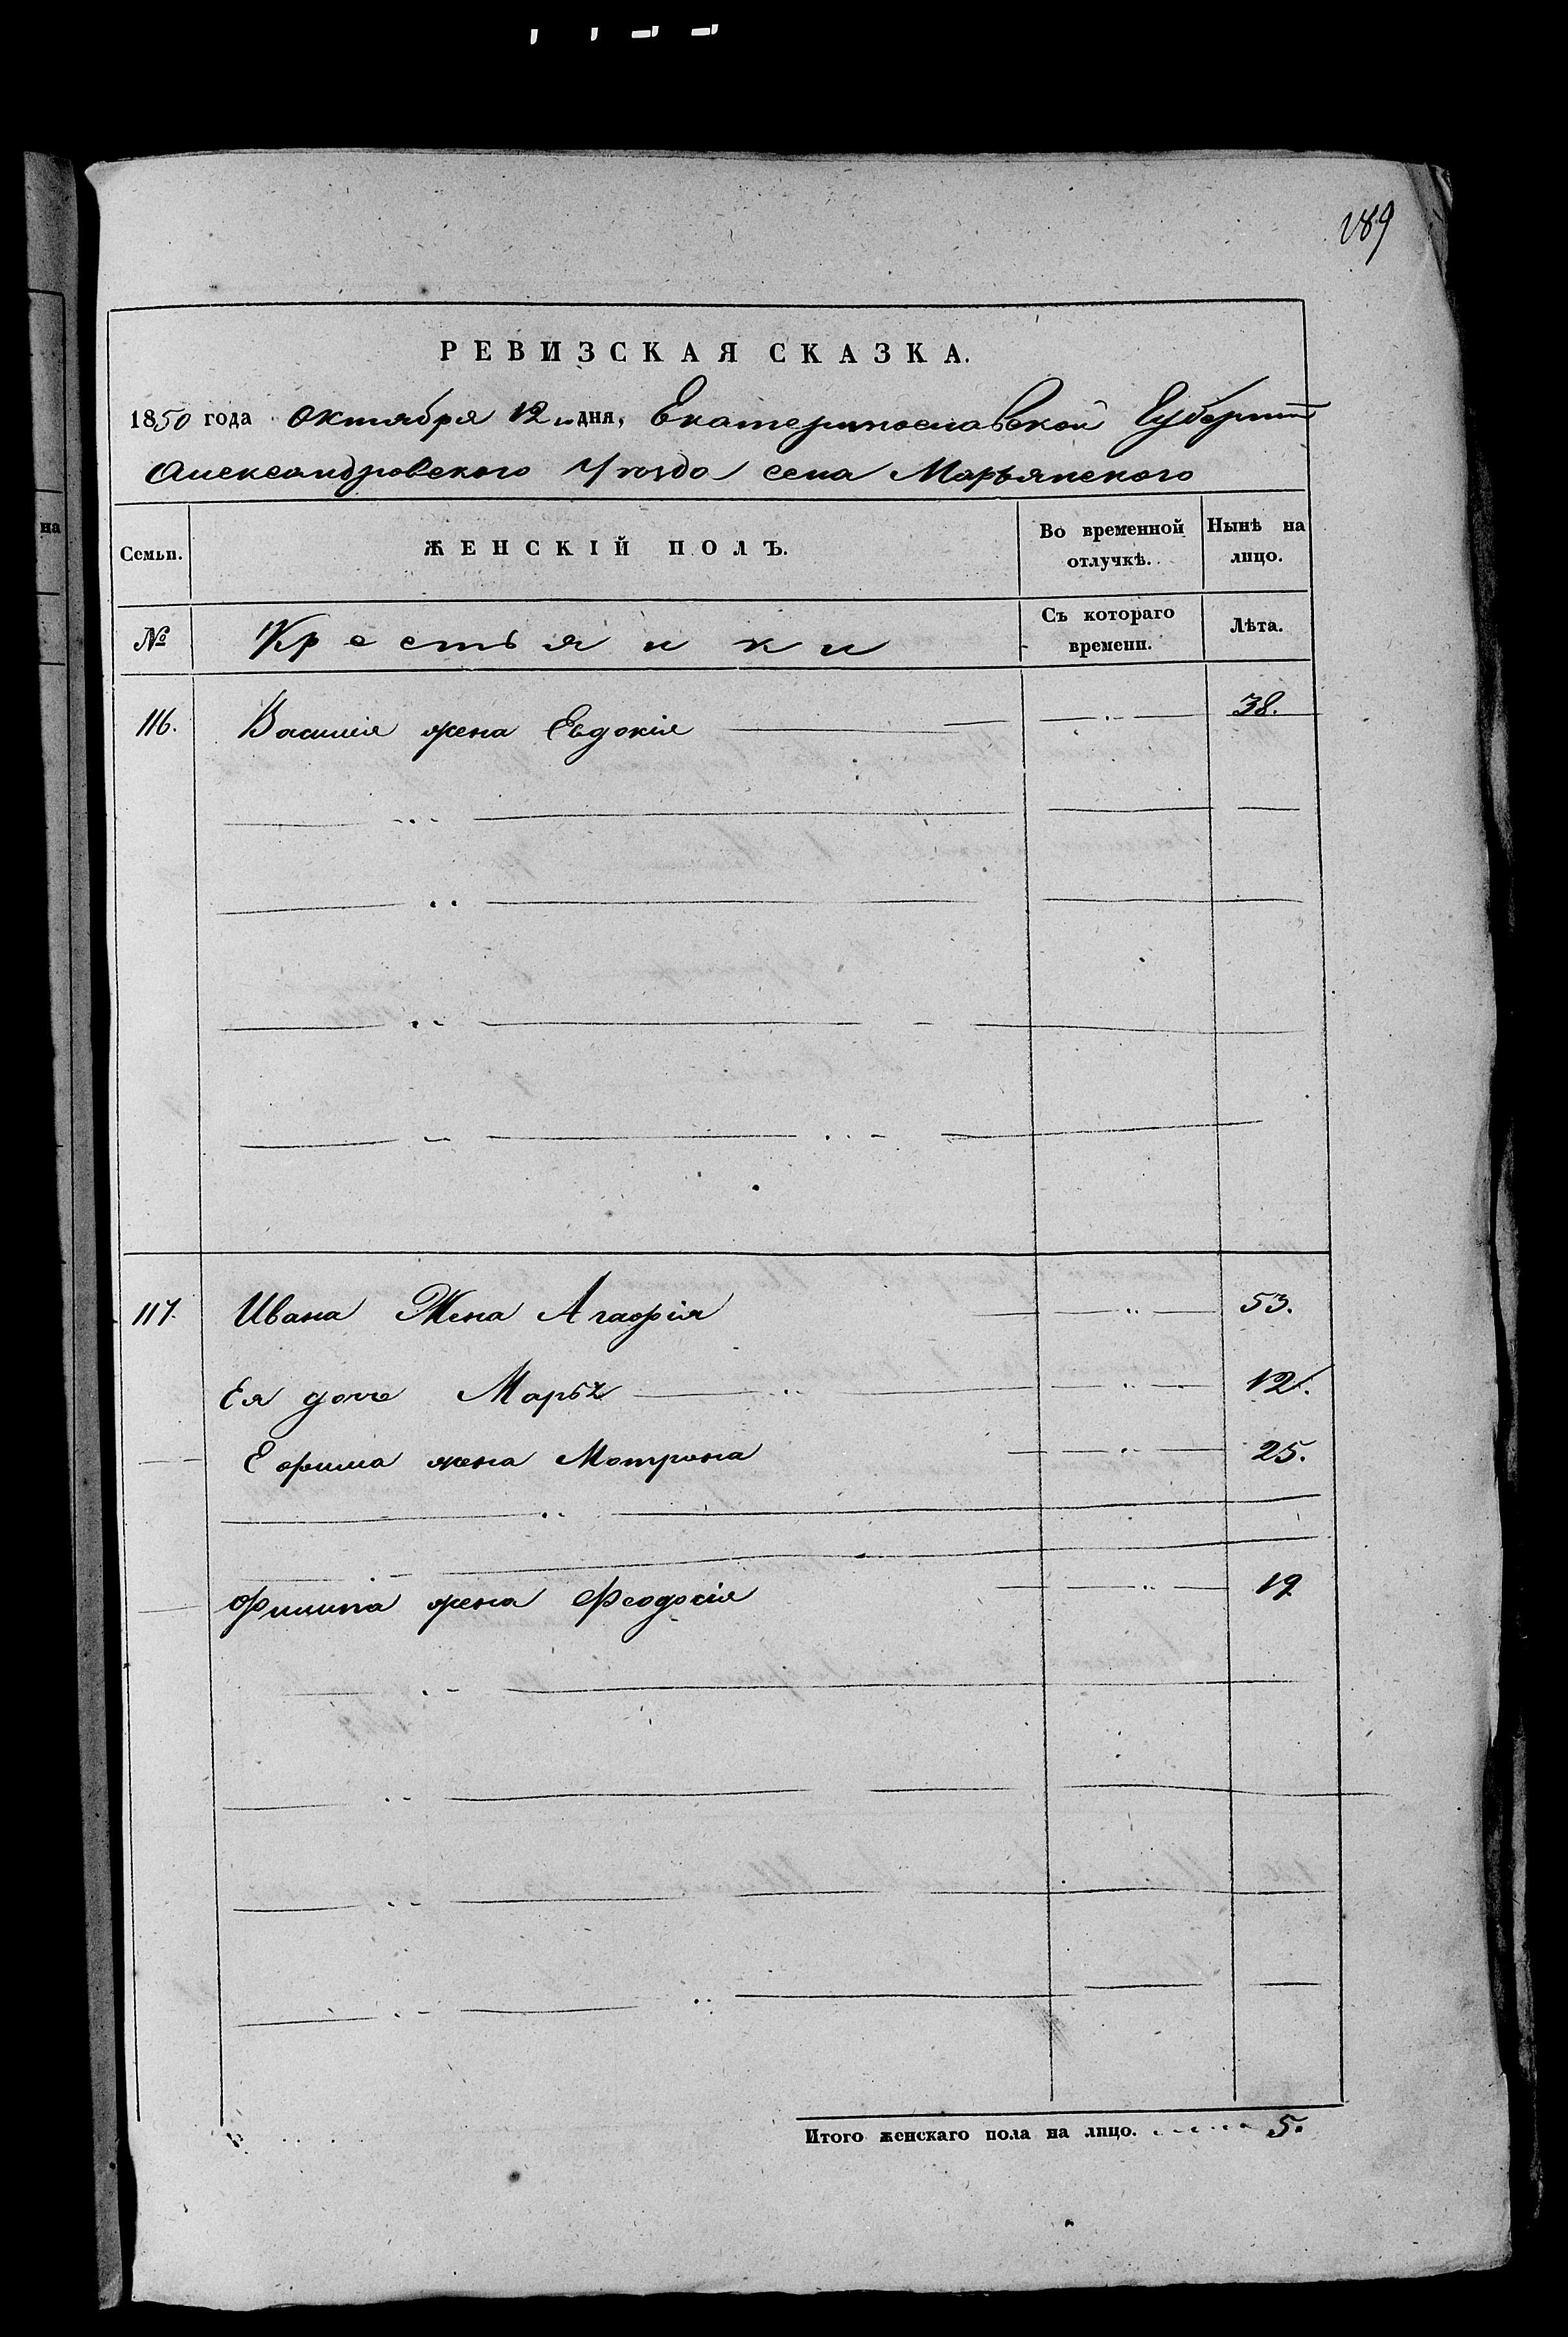 189
РЕВИЗСКАЯ СКАЗКА.
1850 года октября 12 дня, Екатеринославской Губернии
Александровского Уезда села Марьянского
на
Семьи. ЖЕНСКІЙ ПОЛЪ. Во временной отлучкѣ. Нынѣ на лицо.
№ Крестьянки Съ котораго времени. Лѣта.
116. Василія жена Евдокія 38.
117. Ивана Жена Агафія 53.
Ея дочь Марья 12.
Ефима жена Мотрона 25.
Филипа жена Феодосія 19
Итого женскаго пола на лицо. 5.